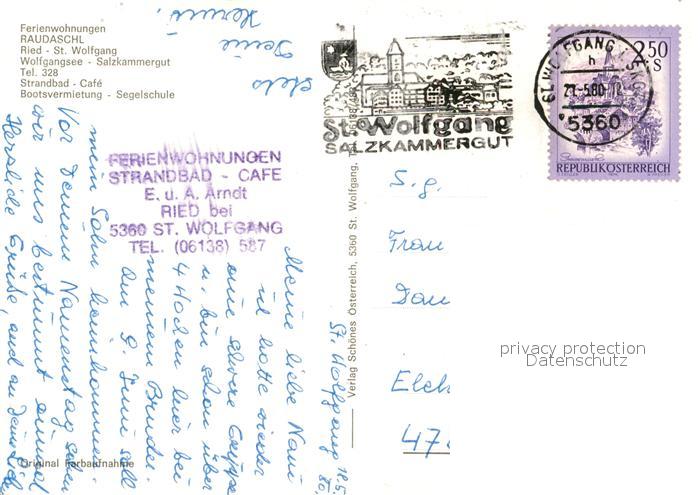 Ferienwohnungen
RAUDASCHL
Ried - St. Wolfgang
Wolfgangsee - Salzkammergut
Tel. 328
Strandbad - Café
Bootsvermietung - Segelschule
FERIENWOHNUNGEN
STRANDBAD - CAFE
E. u. A. Arndt
RIED bei
5360 ST. WOLFGANG
TEL. (06138) 587
St. Wolfgang
SALZKAMMERGUT
ST. WOLFGANG
h
21.-5.80-12
5360
2.50
S
REPUBLIK ÖSTERREICH
Verlag Schönes Österreich, 5360 St. Wolfgang, Tel.
St. Wolfgang 18.5.
80.
Meine liebe Nani
ich hatte wieder
eine schwere Grippe
u. bin schon über
4 Wochen hier bei
meinem Bruder.
Am 9. Juni soll
mein Sohn heimkommen.
Vor Deinem Namenstag
wir uns bestimmt einmal
Herzliche Grüße, auch an
stets
Deine
S.g.
Frau
Elch
47.
Original Farbaufnahme
privacy protection
Datenschutz